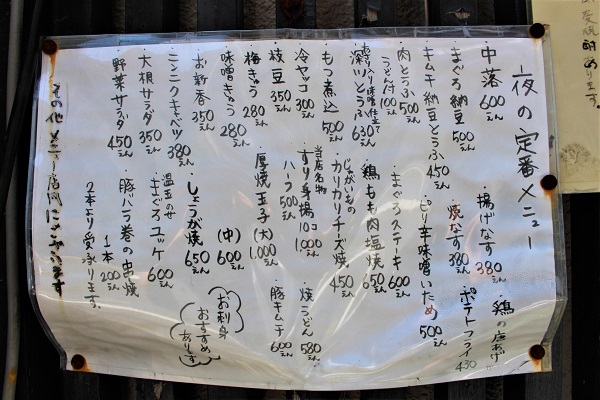 夜の定番メニュー
・中落 600えん
・まぐろ納豆 500えん
・キムチ納豆とうふ 450えん
・肉とうふ 500えん
うどん付 100えん
深川とうふ 630えん
・もつ煮込 500えん
・冷ヤッコ 300えん
・枝豆 350えん
・梅きゅう 280えん
・味噌きゅう 280えん
・お新香 350えん
・ニンニクキャベツ 380えん
・大根サラダ 350えん
・野菜サラダ 450えん
その他メニュー店内にございます
・揚げなす 380えん
・焼なす 380えん
・ピリ辛味噌いため 500えん
・まぐろステーキ 600えん
・鶏もも肉塩焼 650えん
・じゃがいもの
カリカリチーズ焼 450えん
当店名物
・すり身揚 10コ 1,000えん
ハーフ 500えん
・厚焼玉子(大) 1,000えん
(中) 600えん
・しょうが焼 650えん
・温玉のせ
まぐろユッケ 600えん
・豚バラ巻の串焼
1本 200えん
2本より受承ります。
・鶏の唐あげ
・ポテトフライ 430
・焼うどん 580えん
・豚キムチ 600えん
お刺身
おすすめ
あります